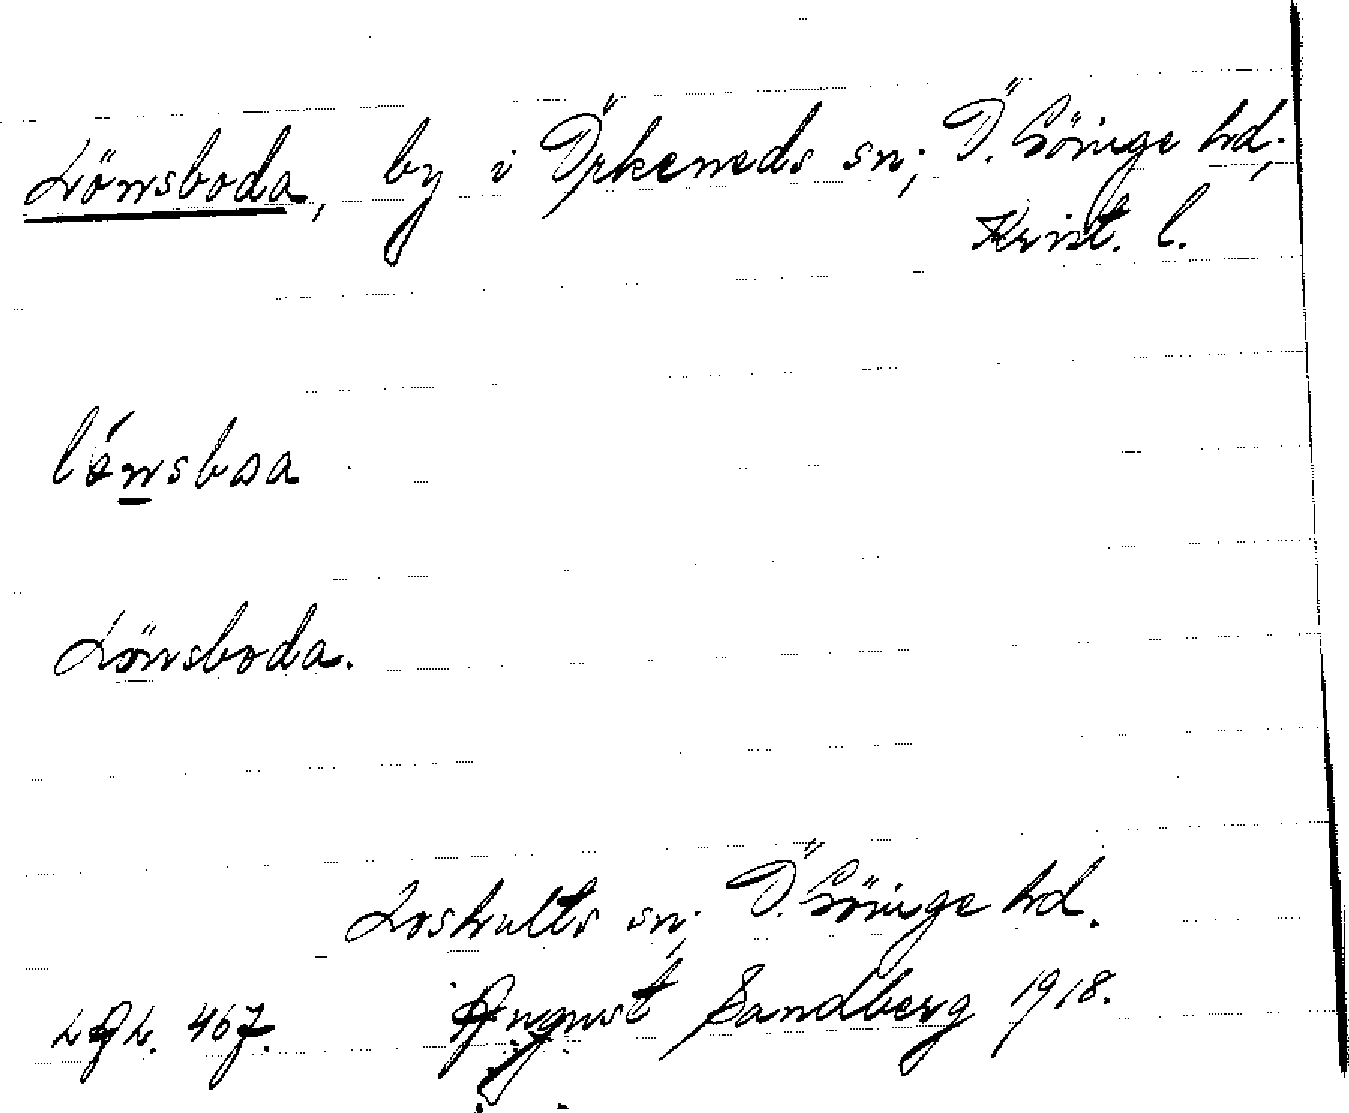 Lönsboda, by i Örkeneds sn; Ö. Göinge hd;
Krist. l.
lönsboa
Lönsboda.
Loshults sn; Ö. Göinge hd.
August Sandberg 1918.
467.